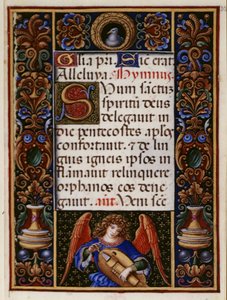 Glia pri. Sic erat
Alleluya. Hymnus.
SVum sactus
spiritu deus
delegauit in
die pentecostes aplos
confortauit. & de lin
guis igneis ipsos in
flamauit relinquere
orphanos eos dene
gauit. ant. Veni scē